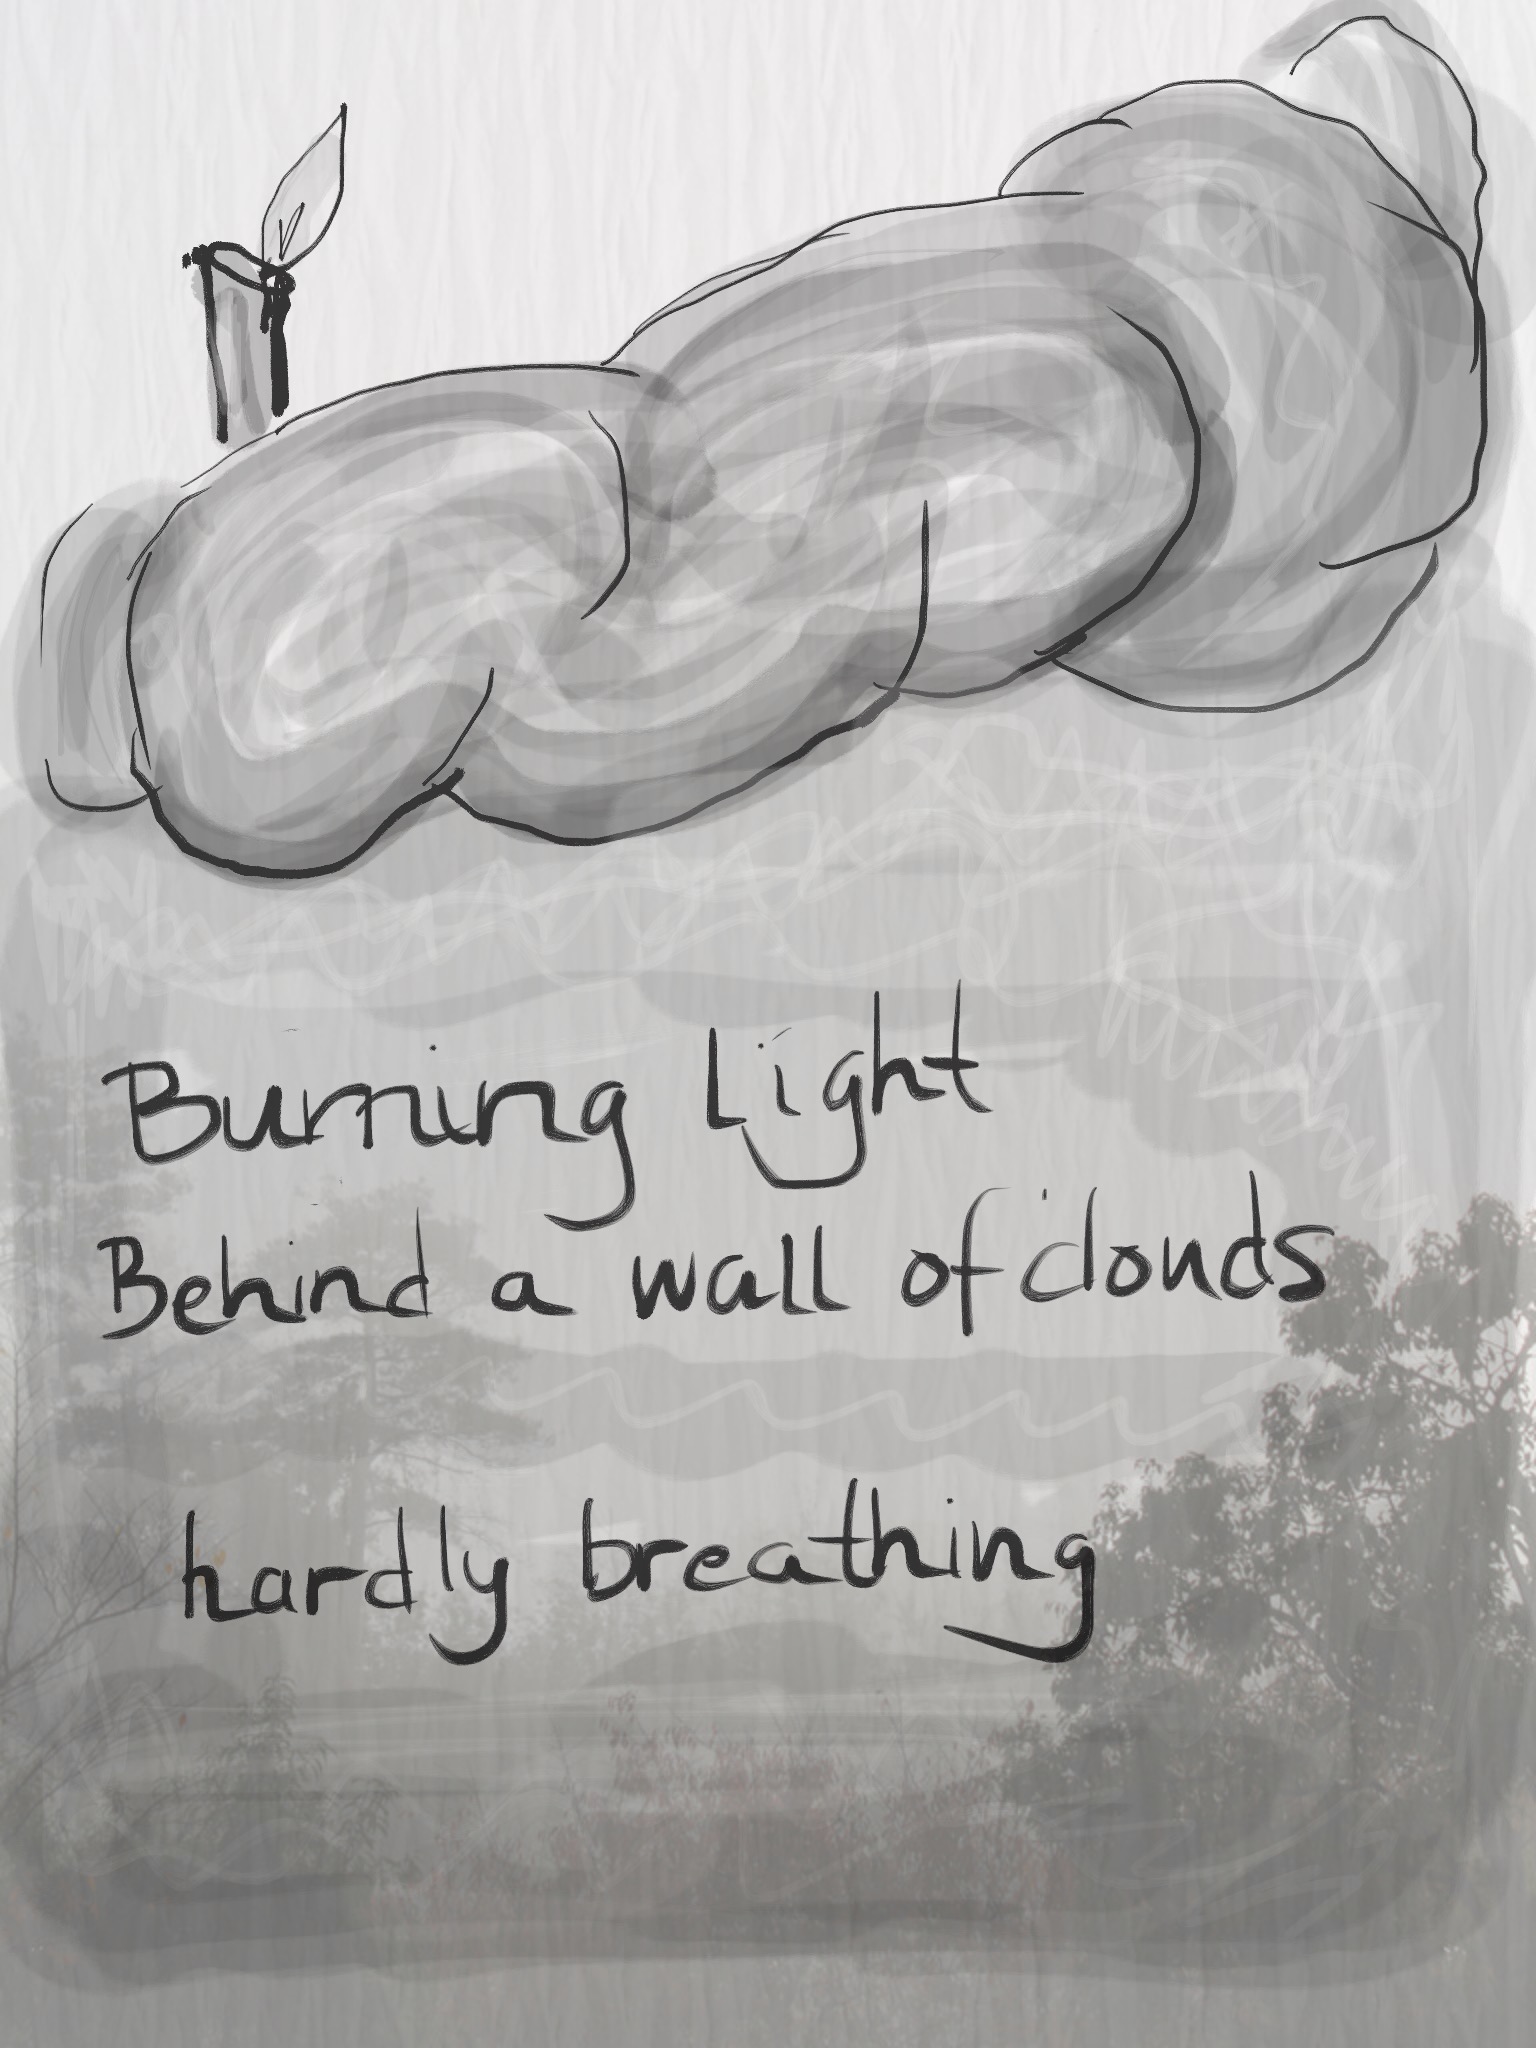 Burning Light
Behind a wall of clouds
hardly breathing